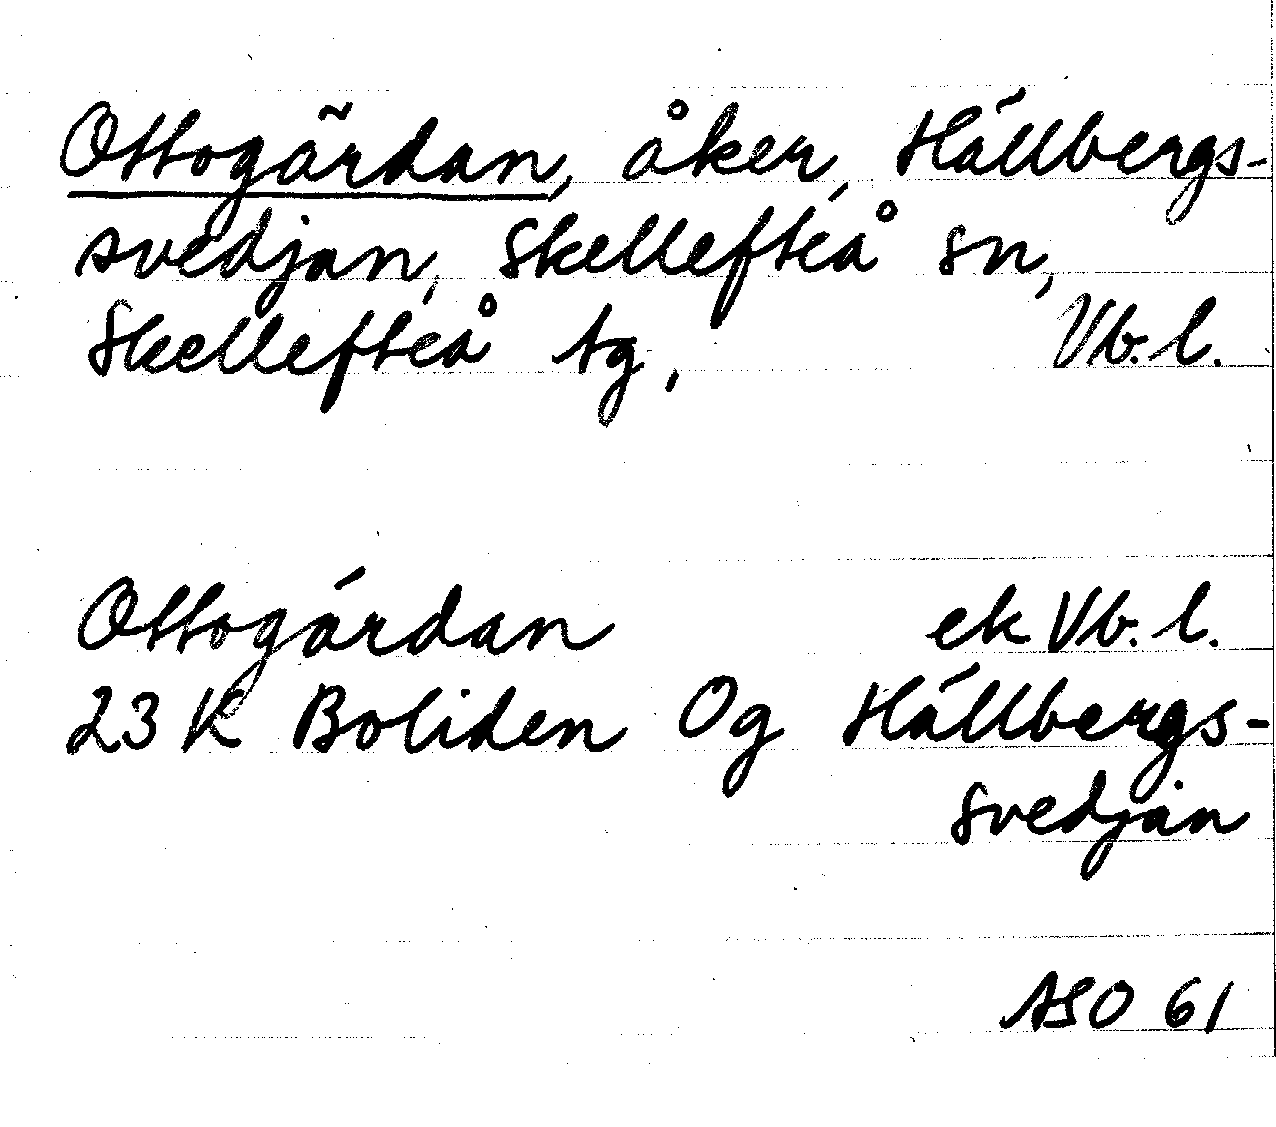 Ottogärdan, åker, Hällbergs-
svedjan, Skellefteå sn,
Skellefteå tg, Vb. l.
Ottogärdan ek Vb. l.
23 K Boliden Og Hällbergs-
svedjan
ASO 61